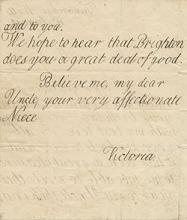 and to you.
We hope to hear that Brighton
does you a great deal of good.
Believe me, my dear
Uncle, your very affectionate
Niece
Victoria.